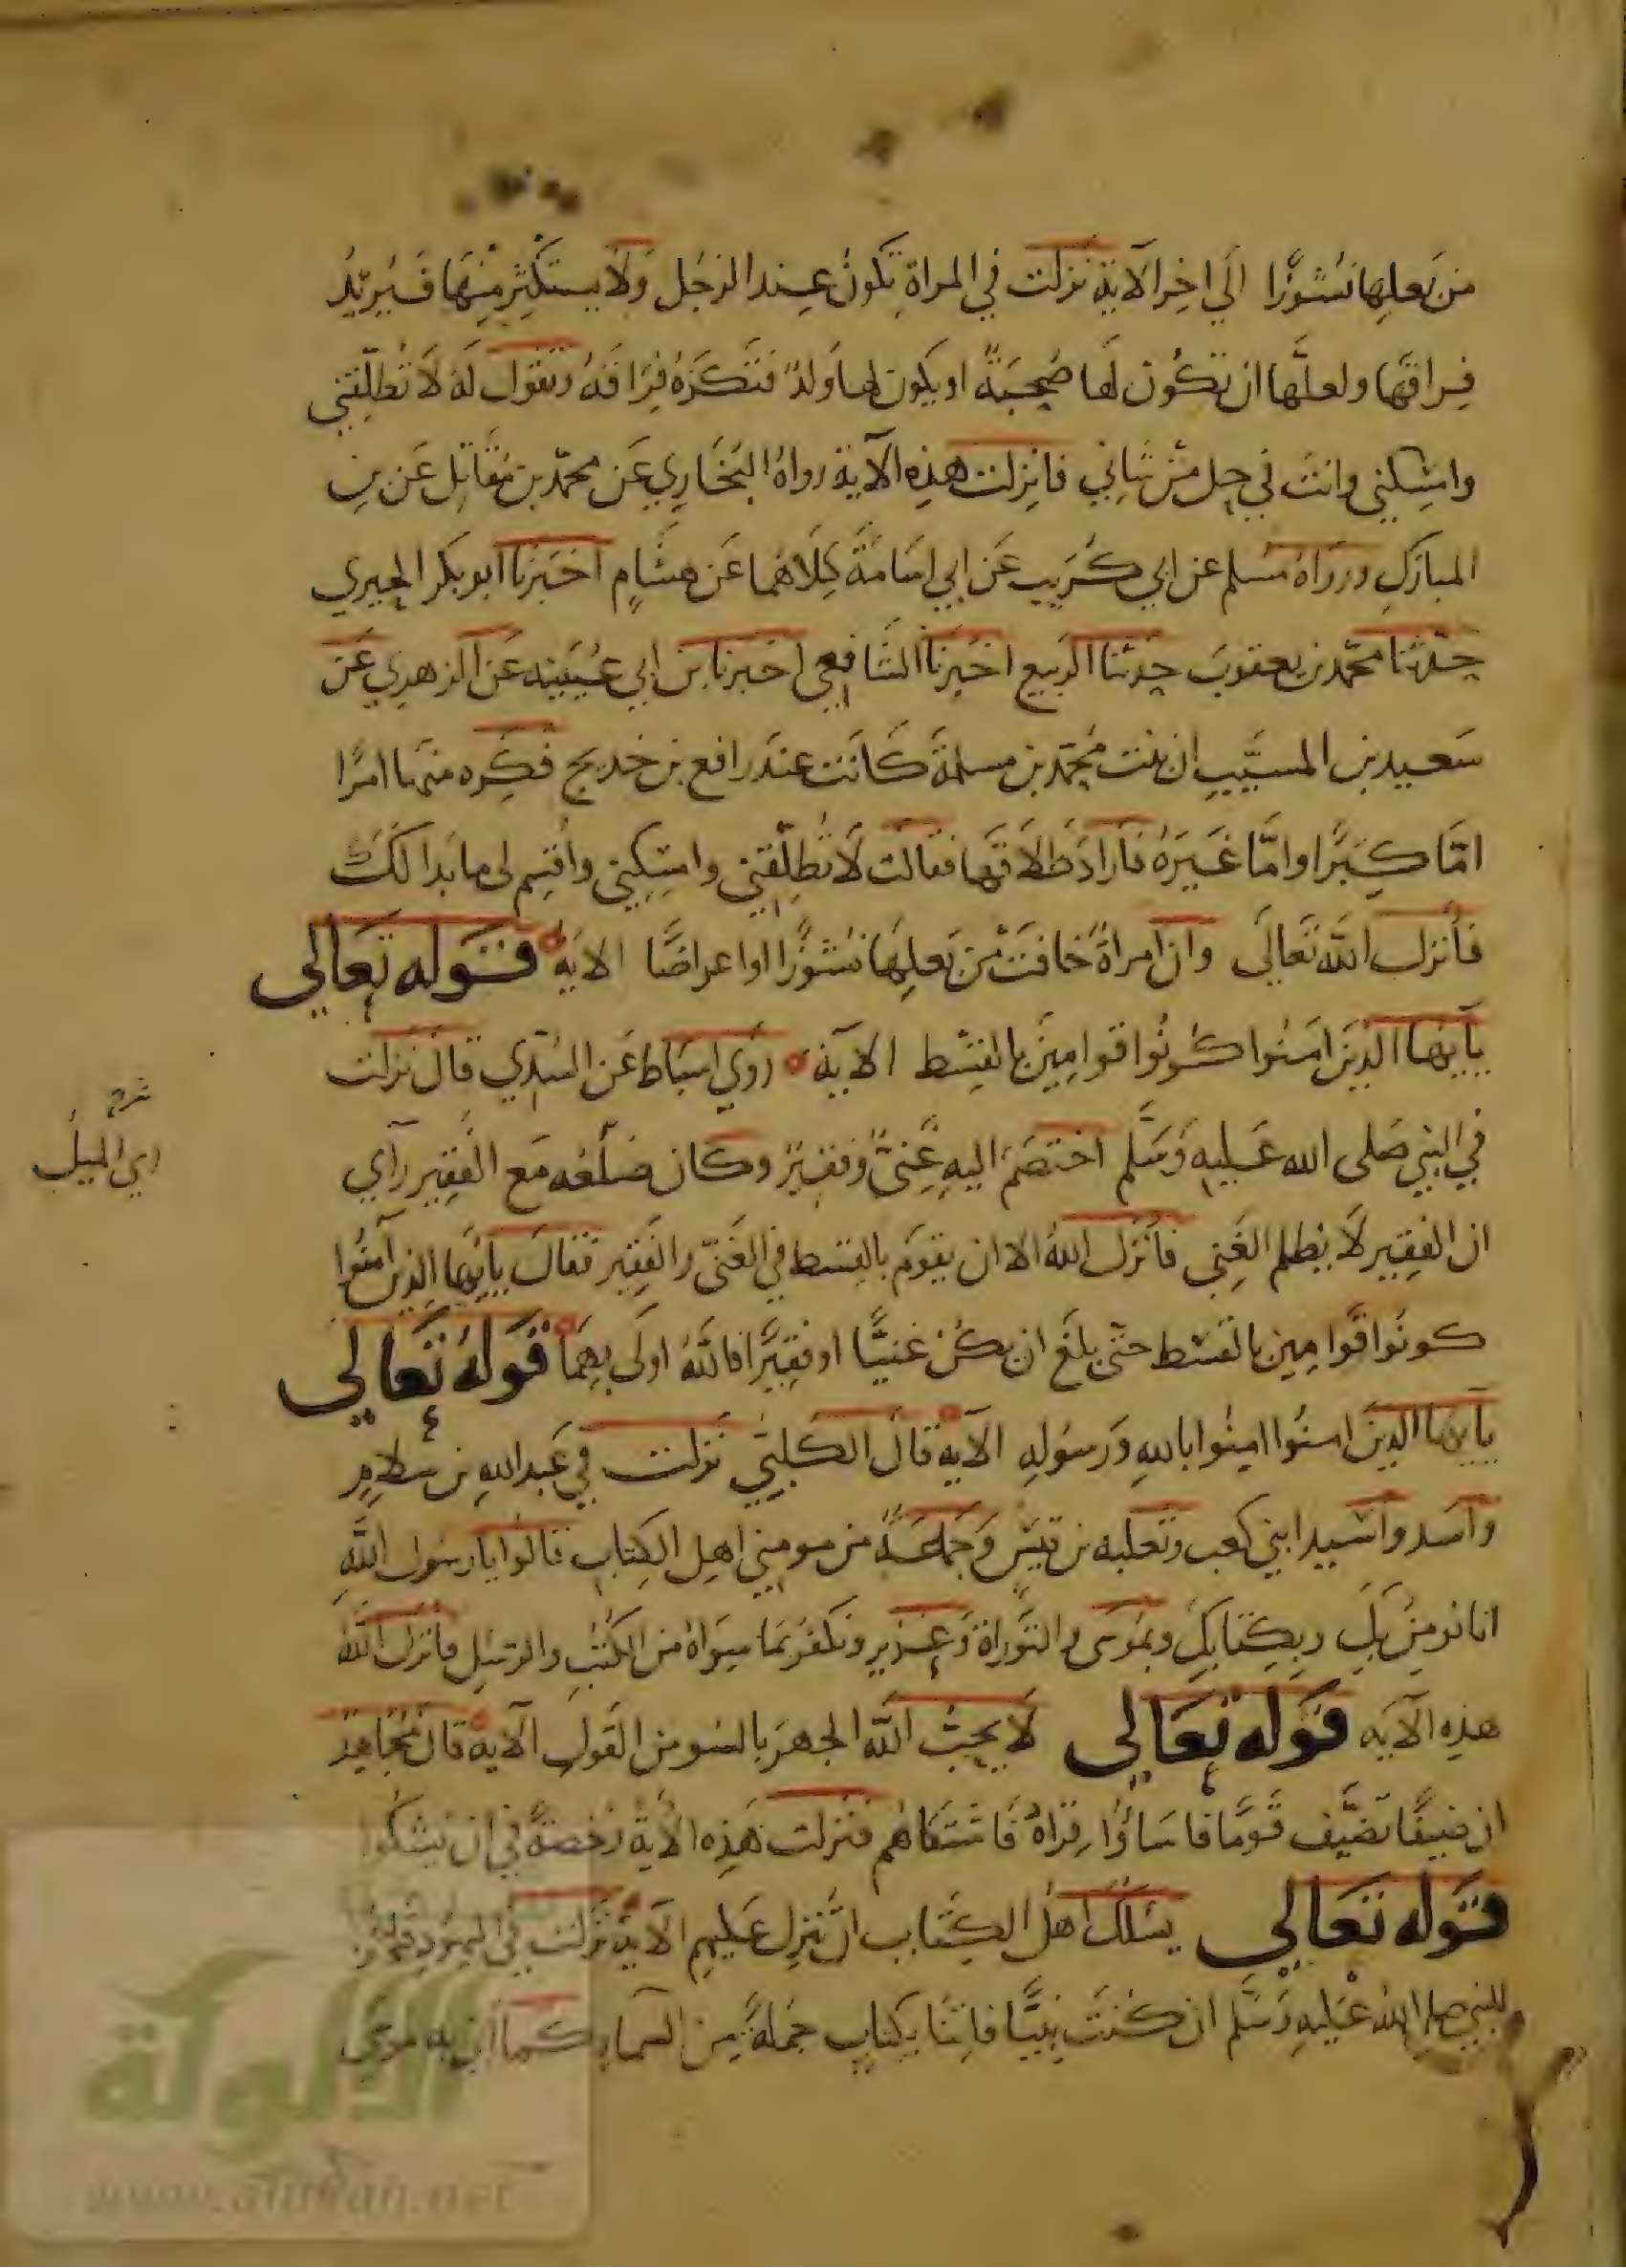 من بعلها نشوزا الى اخر الآية نزلت في المراة تكون عند الرجل ولا يستكثر منها فيريد
فراقها ولعلها ان تكون لها صحبة او يكون لها ولد فتكره فراقه وتقول له لا تطلقني
وامسكني وانت في حل من شاني فانزلت هذه الآية رواه البخاري عن محمد بن مقاتل عن بن
المبارك ورواه مسلم عن ابي كريب عن ابي اسامة كلاهما عن هشام اخبرنا ابو بكر الحيري
حدثنا محمد بن يعقوب حدثنا الربيع اخبرنا الشافعي اخبرنا بن ابي عيينه عن الزهري عن
سعيد بن المسيب ان بنت محمد بن مسلمة كانت عند رافع بن خديج فكره منها امرا
اما كبرا واما غيره فاراد طلاقها فقالت لا تطلقني وامسكني واقسم لي ما بدا لك
فأنزل الله تعالى وان امراة خافت من بعلها نشوزا او اعراضا الاية قوله تعالى
يا يها الذين امنوا كونوا قوامين بالقسط الآية روى اسباط عن السدي قال نزلت
في النبي صلى الله عليه وسلم اختصم اليه غني وفقير وكان ضلعه مع الفقير رآي
ان الفقير لا يظلم الغني فأنزل الله الا ان يقوم بالقسط في الغني والفقير فقال يايها الذين آمنوا
كونوا قوامين بالقسط حتى بلغ ان يكن غنيا او فقيرا فالله اولى بهما قوله تعالى
يا يها الذين امنوا امنوا بالله ورسوله الآية قال الكلبي نزلت في عبد الله بن سلام
واسد واسيد ابني كعب وثعلبه بن قيس وجماعة من مومني اهل الكتاب قالوا يا رسول الله
انا نومن بك وبكتابك وبموسى والتوراة وعزير ونكفر بما سواه من الكتب والرسل فانزل الله
هذه الآيه قوله تعالى لا يحب الله الجهر بالسو من القول الآية قال مجاهد
ان ضيفا تضيف قوما فاساؤا قراه فاشتكاهم فنزلت هذه الآية رخصة في ان يشكوا
قوله تعالى يسلك اهل الكتاب ان تنزل عليهم الآية نزلت في اليهود قالوا
للنبي صلى الله عليه وسلم ان كنت نبيا فاتنا بكتاب جملة من السماء كما اتى به موسى
اي الميل
الألوكة
www.alukah.net